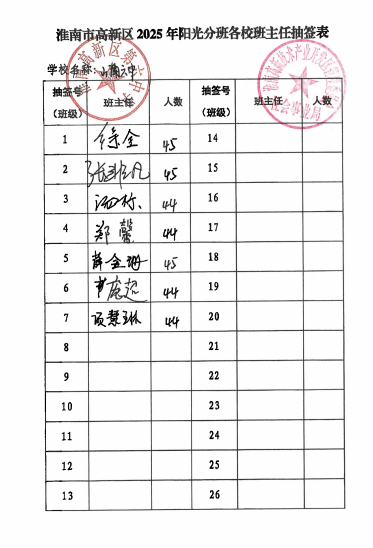 淮南市高新区 2025 年阳光分班各校班主任抽签表
学校名称：
抽签号（班级） 班主任 人数 抽签号（班级） 班主任 人数
1 徐全 45 14
2 张非凡 45 15
3 44 16
4 郑馨 44 17
5 薛金珊 45 18
6 44 19
7 顾慧琳 44 20
8 21
9 22
10 23
11 24
12 25
13 26